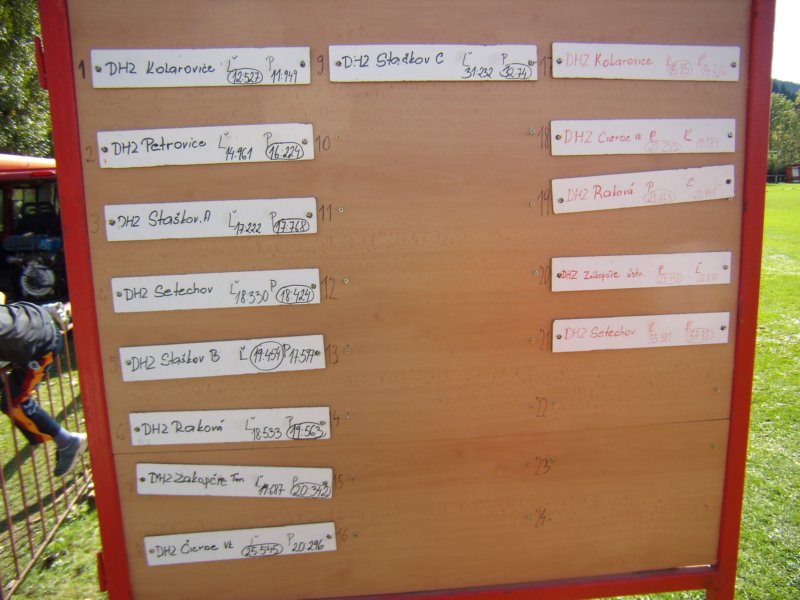 1 DHZ Kolarovice Ľ 12:527 P 11:949
2 DHZ Petrovice Ľ 14:961 P 16:224
3 DHZ Staškov A Ľ 17:222 P 17:768
4 DHZ Setechov Ľ 18:330 P 18:424
5 DHZ Staškov B Ľ 19:459 P 17:577
6 DHZ Raková Ľ 18:533 P 19:563
DHZ Zakopčie Ľ 19:687 P 20:342
8 DHZ Čierne Ľ 25:545 P 20:296
9 DHZ Staškov C Ľ 31:232 P 32:74
10
11
12
13
4
15
16
17 DHZ Kolarovice Ľ P
18 DHZ Čierne P Ľ
19 DHZ Raková P Ľ
20 DHZ Zakopčie ústr. P Ľ
21 DHZ Setechov
22
23
24